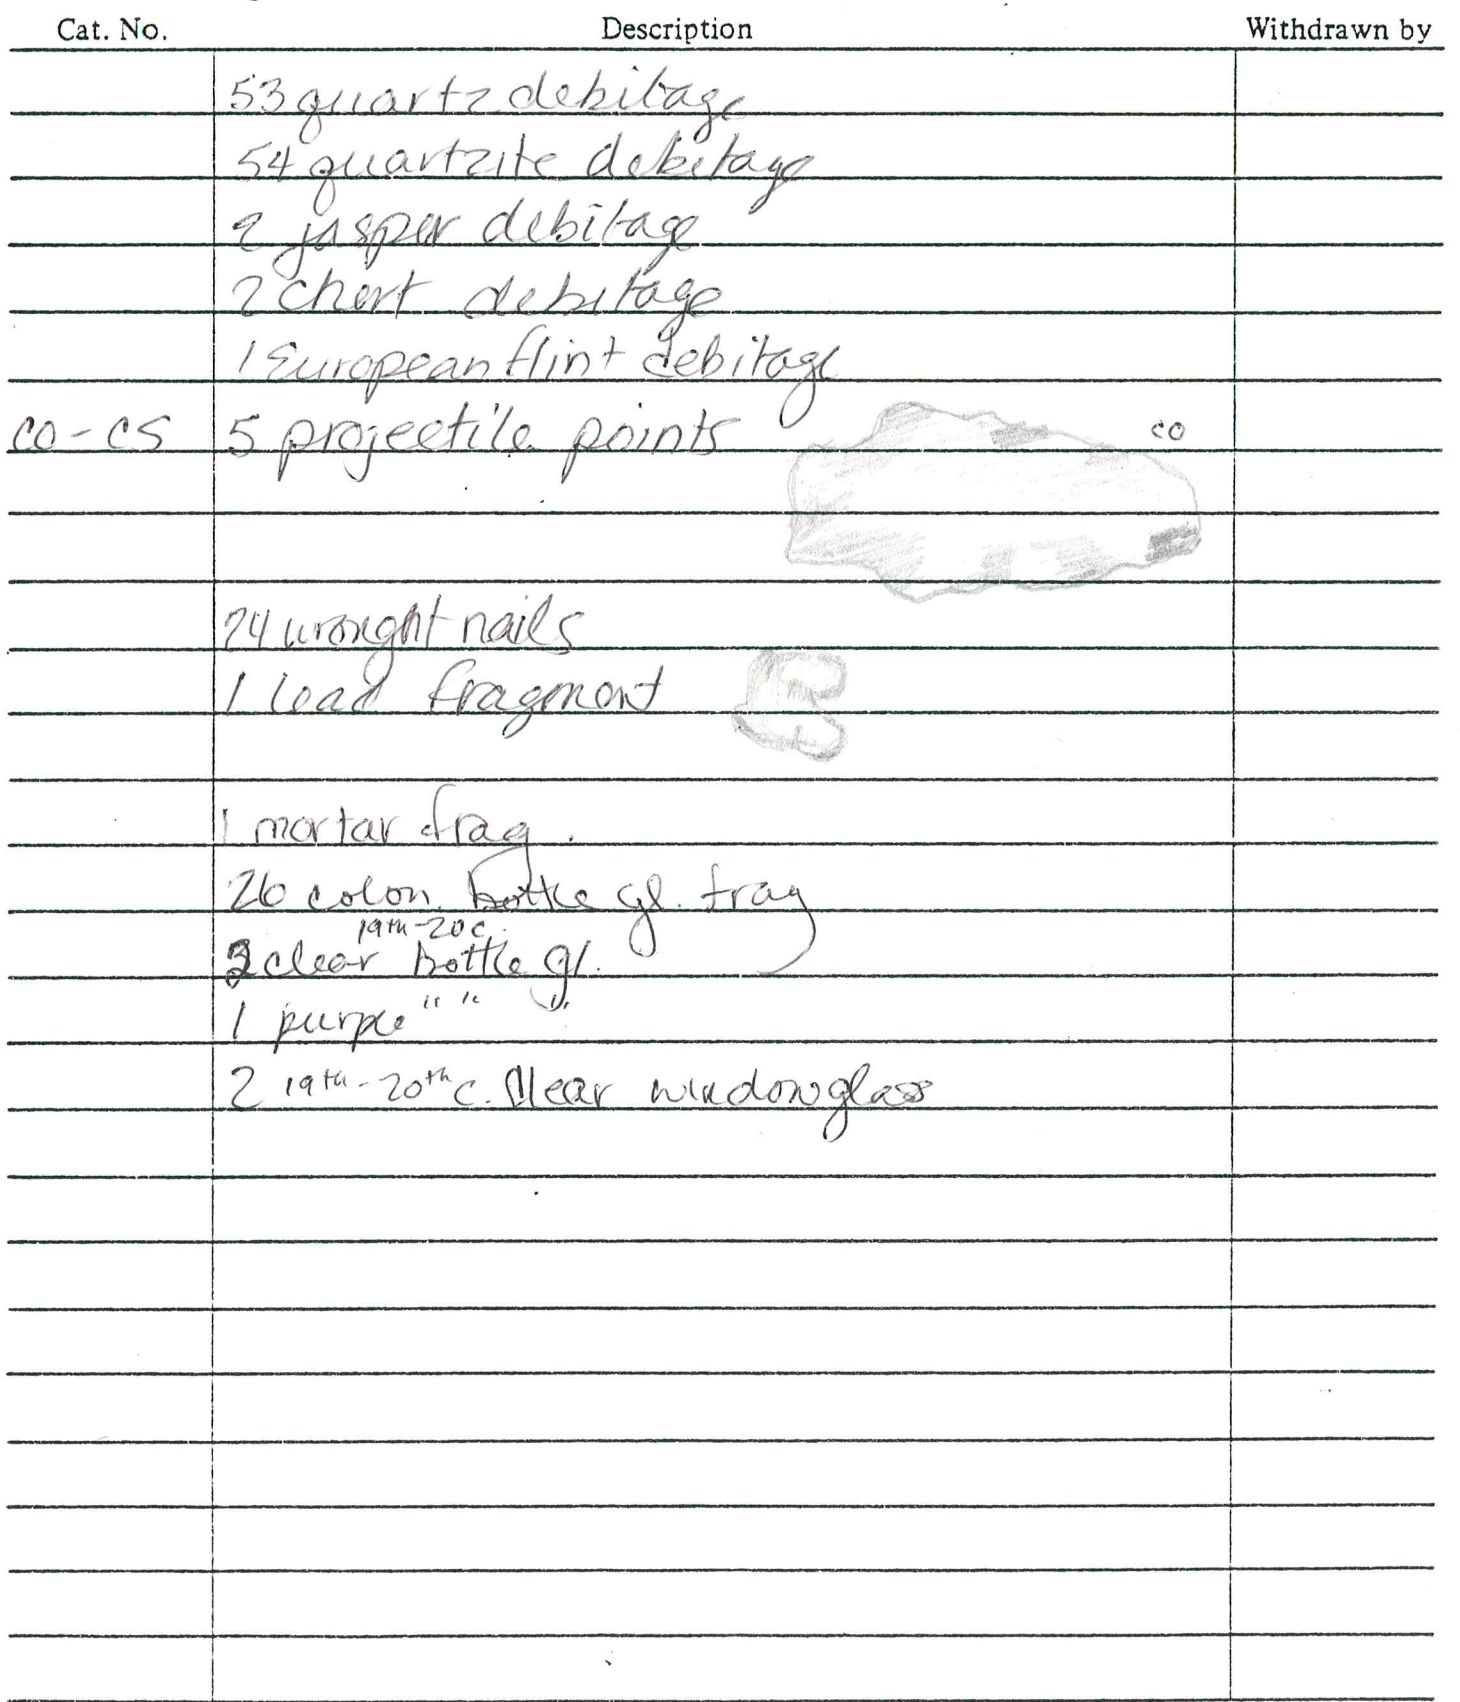 Cat. No. Description Withdrawn by
53 quartz debitage
54 quartzite debitage
2 jasper debitage
2 chert debitage
1 European flint debitage
CO-CS 5 projectile points
CO
24 wrought nails
1 lead fragment
1 mortar frag.
26 colon. bottle gl. frag
19th-20 c.
3 clear bottle gl.
1 purple " " "
2 19th-20th c. Clear window glass